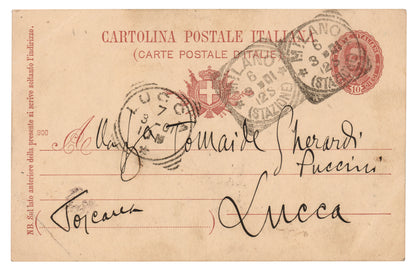 CARTOLINA POSTALE ITALIANA
(CARTE POSTALE D'ITALIE)
MILANO
6
12 S
(STAZIONE)
MILANO
6
12 S
(STAZIONE)
10
LUCCA
7
900
NB. Sul lato anteriore della presente si scrive soltanto l'indirizzo.
A
Tomaide Gherardi
Puccini
Lucca
Toscana